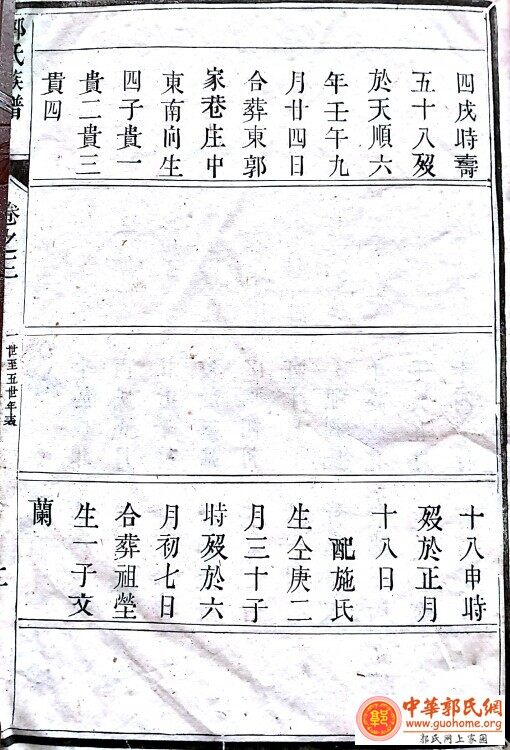 四戌時壽
五十八歿
於天順六
年壬午九
月廿四日
合葬東郭
家巷庄中
東南向生
四子貴一
貴二貴三
貴四
十八申時
歿於正月
十八日
配施氏
生仝庚二
月三十子
時歿於六
月初七日
合葬祖塋
生一子文
蘭
郭氏族譜
卷之二
一世至五世年表
中華郭氏網
www.guohome.org
郭氏网上家园